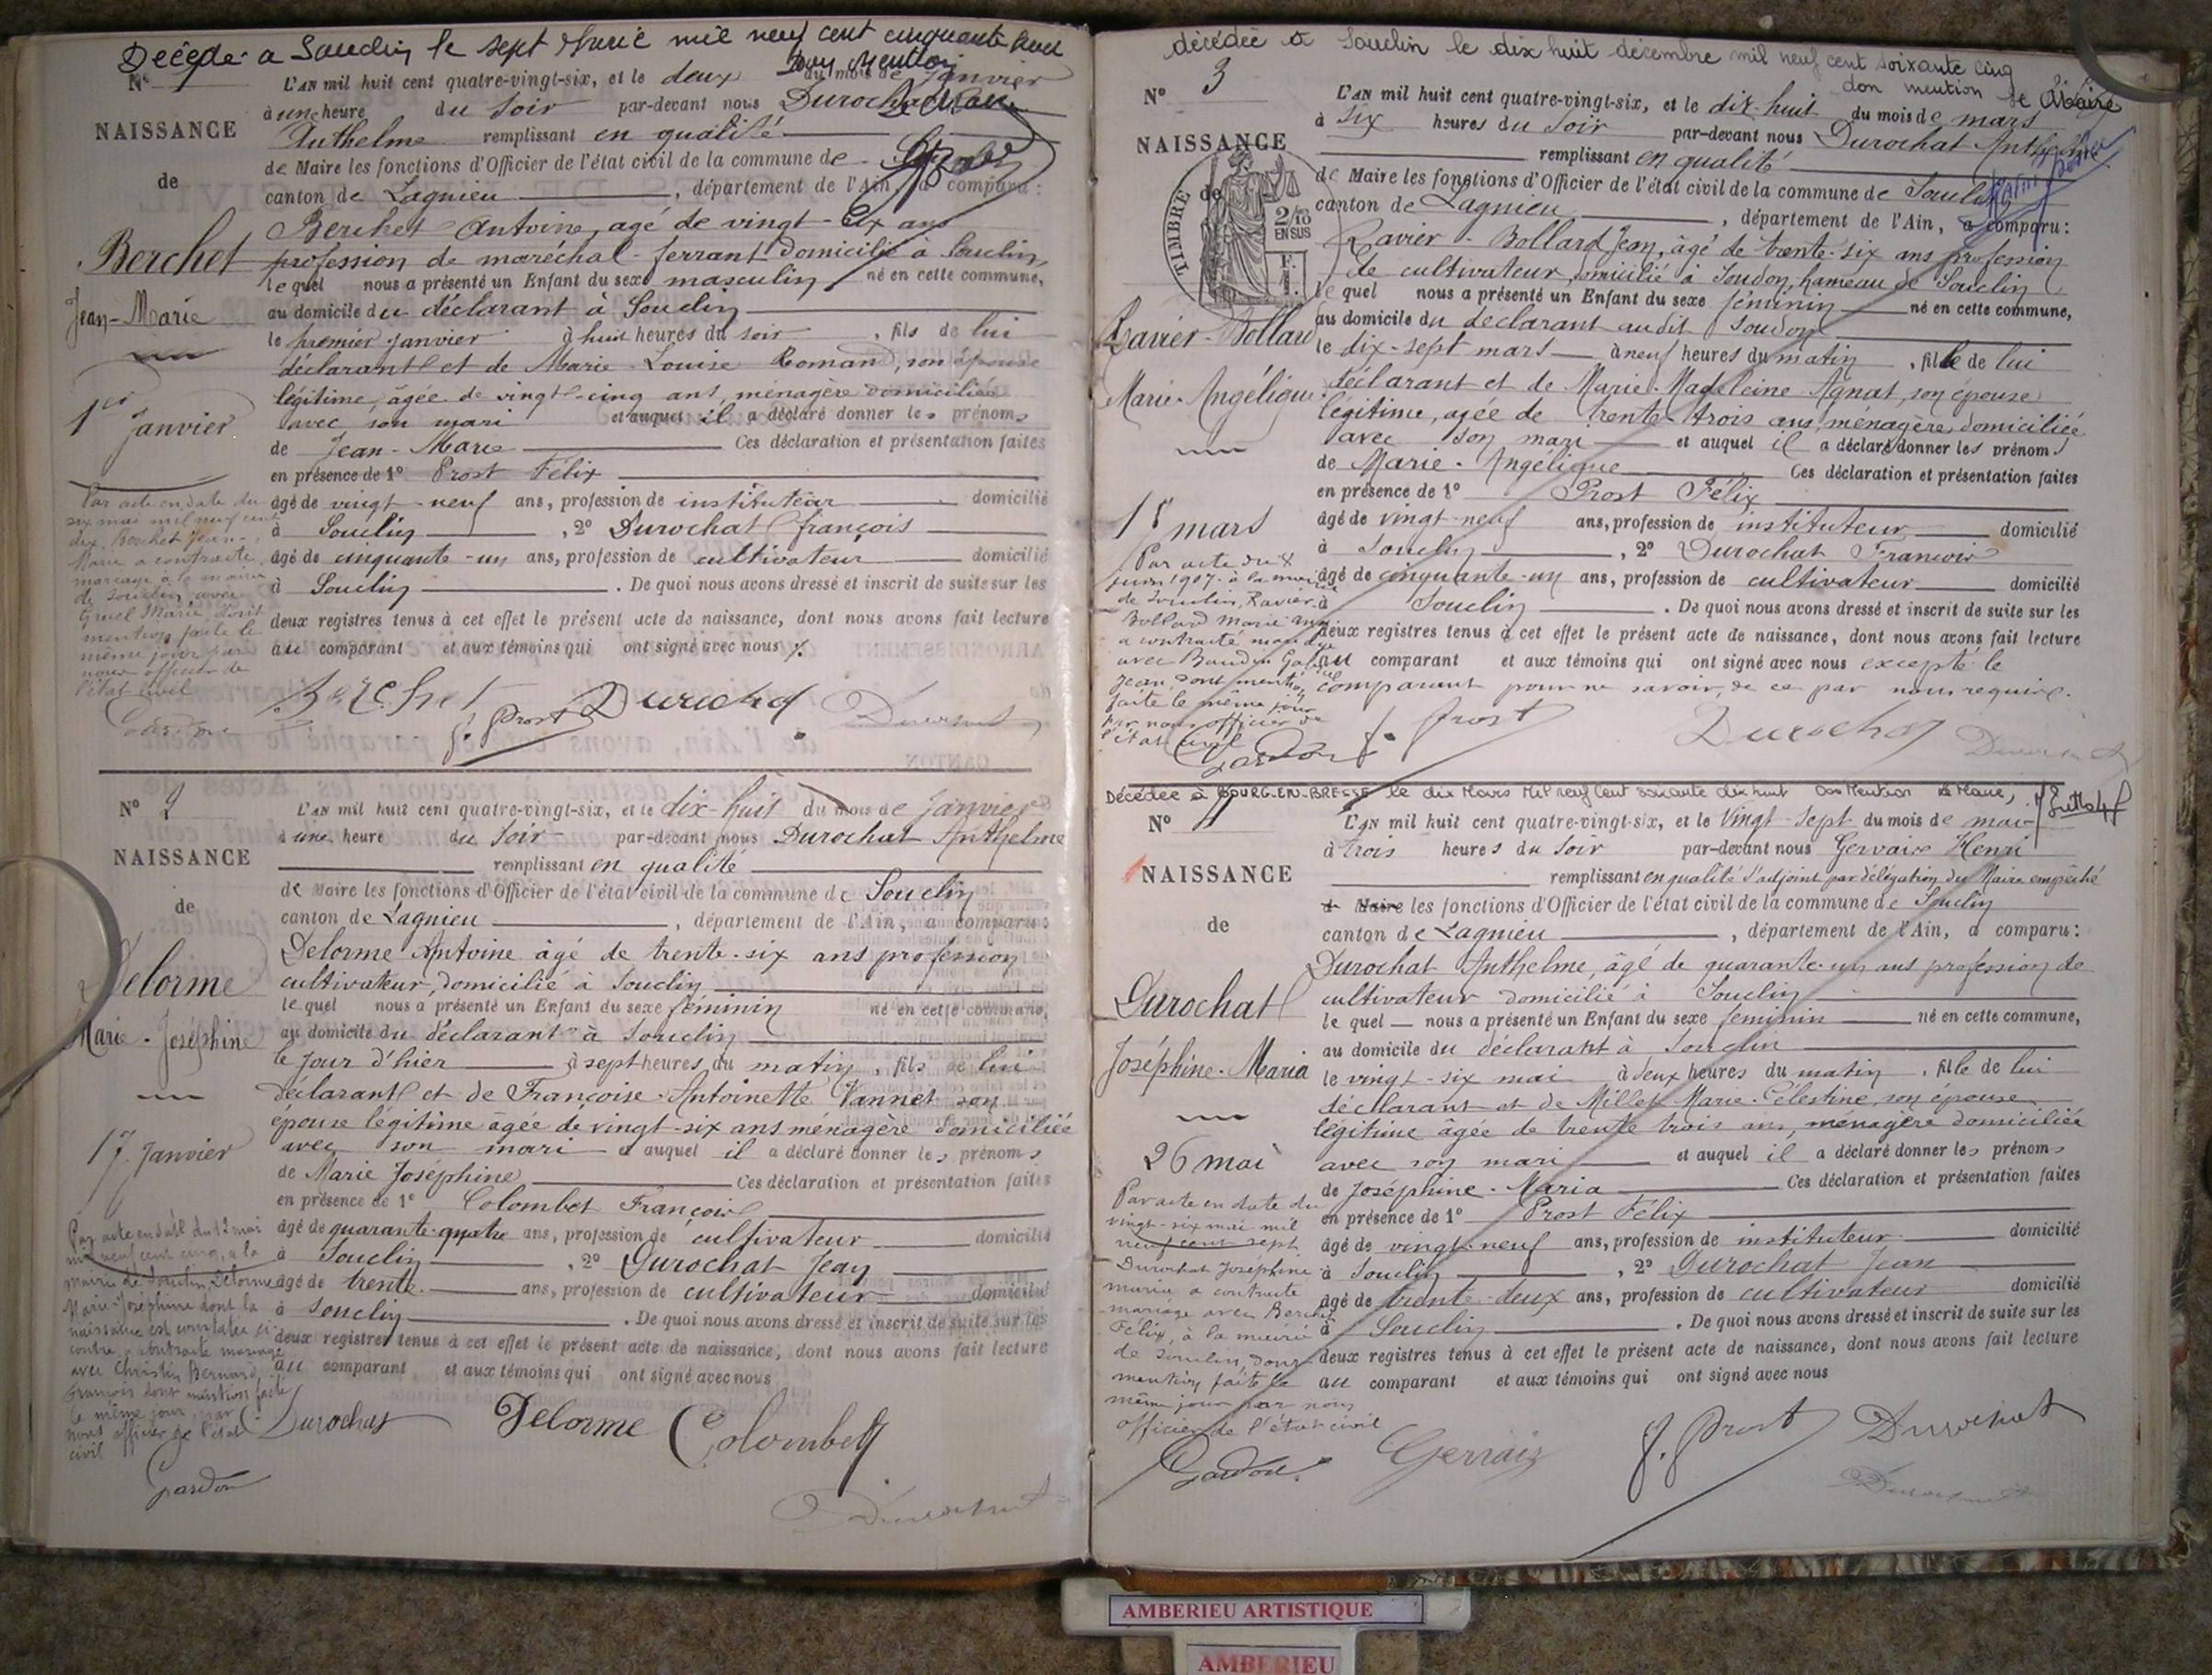 Décédé a Souclin le sept mil neuf cent cinquante
Dont Mention
Le Maire
N° 1
NAISSANCE
de
Berchet
Jean-Marie
1er Janvier
L'AN mil huit cent quatre-vingt-six, et le deux du mois de Janvier
à une heure du Soir par-devant nous Durochat
Anthelme remplissant en qualité
de Maire les fonctions d'Officier de l'état civil de la commune de
canton de Lagnieu, département de l'Ain, a comparu:
Berchet Antoine, agé de vingt-six ans
profession de maréchal-ferrant domicilié à Souclin,
le quel nous a présenté un Enfant du sexe masculin né en cette commune,
au domicile du déclarant à Souclin
le premier Janvier à huit heures du soir, fils de lui
déclarant et de Marie Louise Romand, son épouse
légitime, âgée de vingt-cinq ans, ménagère domiciliée
avec son mari et auquel il a déclaré donner les prénoms
de Jean-Marie Ces déclaration et présentation faites
en présence de 1° Prost Félix
âgé de vingt-neuf ans, profession de instituteur domicilié
à Souclin, 2° Durochat françois
âgé de cinquante-un ans, profession de cultivateur domicilié
à Souclin. De quoi nous avons dressé et inscrit de suite sur les
deux registres tenus à cet effet le présent acte de naissance, dont nous avons fait lecture
au comparant et aux témoins qui ont signé avec nous
Par acte en date du
six mai mil neuf cent
dix, Berchet Jean-
Marie a contracté
mariage à la mairie
de Souclin avec
Gruel Marie, dont
mention faite le
même jour par
nous officier de
l'état civil
Berchet
F. Prost
Durochat
Durochat
N° 2
NAISSANCE
de
Delorme
Marie-Joséphine
17 Janvier
L'AN mil huit cent quatre-vingt-six, et le dix-huit du mois de Janvier
à une heure du Soir par-devant nous Durochat Anthelme
remplissant en qualité
de Maire les fonctions d'Officier de l'état civil de la commune de Souclin
canton de Lagnieu, département de l'Ain, a comparu:
Delorme Antoine âgé de trente-six ans profession
cultivateur, domicilié à Souclin
le quel nous a présenté un Enfant du sexe féminin né en cette commune,
au domicile du déclarant à Souclin
le jour d'hier à sept heures du matin, fils de lui
déclarant et de Françoise-Antoinette Vannet son
épouse légitime âgée de vingt-six ans ménagère domiciliée
avec son mari et auquel il a déclaré donner les prénoms
de Marie Joséphine Ces déclaration et présentation faites
en présence de 1° Colombet François
âgé de quarante-quatre ans, profession de cultivateur domicilié
à Souclin, 2° Durochat Jean
âgé de trente ans, profession de cultivateur domicilié
à Souclin. De quoi nous avons dressé et inscrit de suite sur les
deux registres tenus à cet effet le présent acte de naissance, dont nous avons fait lecture
au comparant et aux témoins qui ont signé avec nous
Par acte en date du 12 mai
mil neuf cent cinq, à la
mairie de Souclin, Delorme
Marie-Joséphine dont la
naissance est constatée ci-
contre a contracté mariage
avec Christin Bernard
François dont mention faite
le même jour, par
nous officier de l'état
civil
Gardon
Durochat
Delorme
Colombet
Durochat
décédée à Souclin le dix huit décembre mil neuf cent soixante cinq
don mention le Maire
N° 3
NAISSANCE
de
TIMBRE
2/10
EN SUS
F.
1.
Ravier-Bollard
Marie-Angélique
17 mars
L'AN mil huit cent quatre-vingt-six, et le dix-huit du mois de mars
à six heures du Soir par-devant nous Durochat Anthelme
remplissant en qualité
de Maire les fonctions d'Officier de l'état civil de la commune de Souclin
canton de Lagnieu, département de l'Ain, a comparu:
Ravier-Bollard Jean, âgé de trente-six ans profession
de cultivateur, domicilié à Soudon, hameau de Souclin
le quel nous a présenté un Enfant du sexe féminin né en cette commune,
au domicile du déclarant audit Soudon
le dix-sept mars à neuf heures du matin, fille de lui
déclarant et de Marie-Madeleine Agnat, son épouse
légitime, agée de trente-trois ans, ménagère, domiciliée
avec son mari et auquel il a déclaré donner les prénoms
de Marie-Angélique Ces déclaration et présentation faites
en présence de 1° Prost Félix
âgé de vingt-neuf ans, profession de instituteur domicilié
à Souclin, 2° Durochat François
âgé de cinquante-un ans, profession de cultivateur domicilié
à Souclin. De quoi nous avons dressé et inscrit de suite sur les
deux registres tenus à cet effet le présent acte de naissance, dont nous avons fait lecture
au comparant et aux témoins qui ont signé avec nous excepté le
comparant pour ne savoir, de ce par nous requis.
Par acte du 8
juin 1907 à la mairie
de Souclin, Ravier-
Bollard Marie
a contracté mariage
avec Baudin
Jean, dont mention
faite le même jour
par nous officier de
l'état civil
Gardon
F. Prost
Durochat
Durochat
Décédée à BOURG-EN-BRESSE le dix Mars Mil neuf Cent soixante dix huit Dont Mention Le Maire,
N° 4
NAISSANCE
de
Durochat
Joséphine-Maria
26 mai
L'AN mil huit cent quatre-vingt-six, et le Vingt-sept du mois de mai
à trois heures du Soir par-devant nous Gervais Henri
remplissant en qualité d'adjoint par délégation du Maire empêché
de Maire les fonctions d'Officier de l'état civil de la commune de Souclin
canton de Lagnieu, département de l'Ain, a comparu:
Durochat Anthelme, âgé de quarante-un ans profession de
cultivateur domicilié à Souclin
le quel nous a présenté un Enfant du sexe féminin né en cette commune,
au domicile du déclarant à Souclin
le vingt-six mai à deux heures du matin, fille de lui
déclarant et de Millet Marie-Célestine, son épouse
légitime âgée de trente trois ans, ménagère domiciliée
avec son mari et auquel il a déclaré donner les prénoms
de Joséphine-Maria Ces déclaration et présentation faites
en présence de 1° Prost Félix
âgé de vingt-neuf ans, profession de instituteur domicilié
à Souclin, 2° Durochat Jean
âgé de trente-deux ans, profession de cultivateur domicilié
à Souclin. De quoi nous avons dressé et inscrit de suite sur les
deux registres tenus à cet effet le présent acte de naissance, dont nous avons fait lecture
au comparant et aux témoins qui ont signé avec nous
Par acte en date du
vingt-six mai mil
neuf cent sept
Durochat Joséphine
maria a contracté
mariage avec Berchet
Félix, à la mairie
de Souclin, dont
mention faite le
même jour par nous
officier de l'état civil
Gardon
Gervais
F. Prost
Durochat
Durochat
AMBERIEU ARTISTIQUE
AMBERIEU